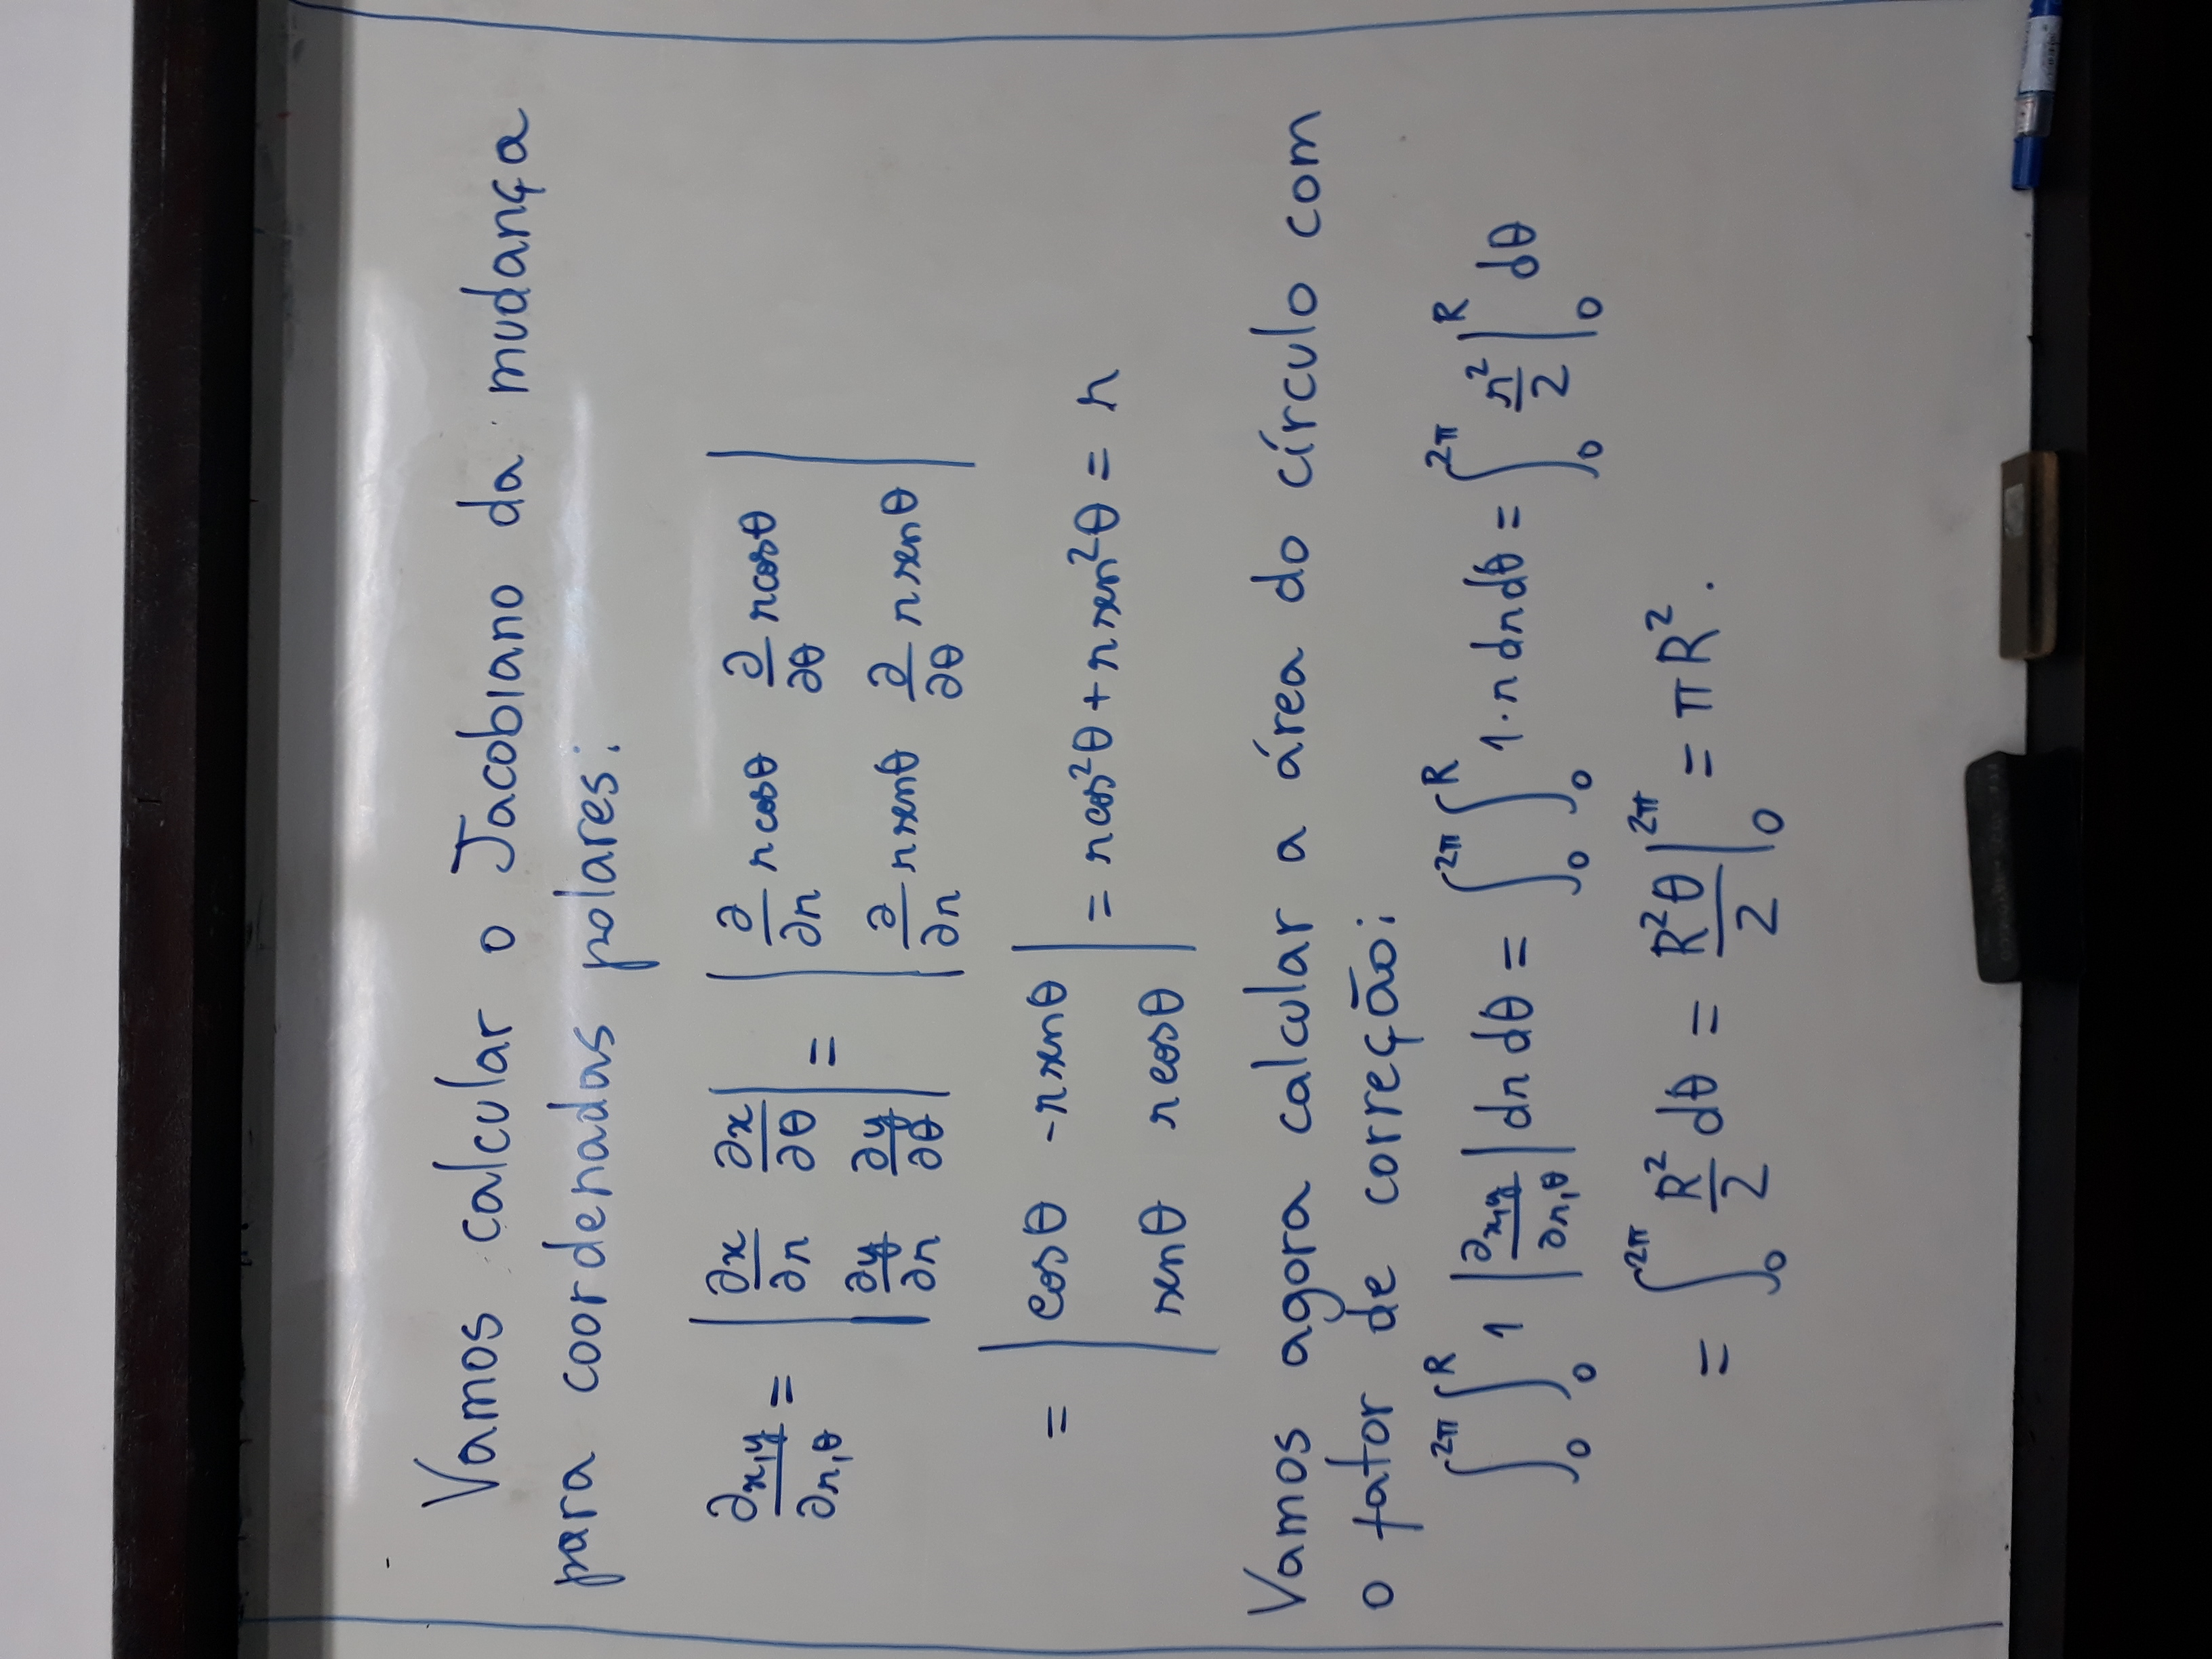 Vamos calcular o Jacobiano da mudança
para coordenadas polares:
∂x,y/∂r,θ = | ∂x/∂r ∂x/∂θ ; ∂y/∂r ∂y/∂θ | = | ∂/∂r r cosθ ∂/∂θ r cosθ ; ∂/∂r r senθ ∂/∂θ r senθ |
= | cosθ -r senθ ; senθ r cosθ | = r cos²θ + r sen²θ = r
Vamos agora calcular a área do círculo com
o fator de correção:
∫₀^2π ∫₀^R 1 |∂x,y/∂r,θ| dr dθ = ∫₀^2π ∫₀^R 1·r dr dθ = ∫₀^2π r²/2 |₀^R dθ
= ∫₀^2π R²/2 dθ = R²θ/2 |₀^2π = πR².